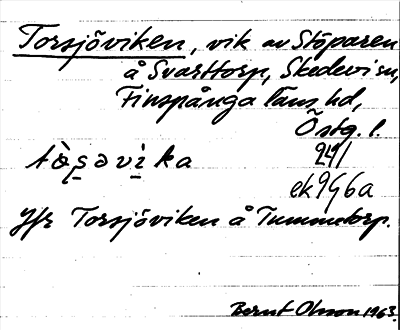 Torsjöviken, vik av Stöparen
å Svarttorp, Skedevi sn,
Finspånga läns hd,
Östg. l.
241
ek 9 G 6 a
Jfr Torsjöviken å Tummetorp.
Bernt Olsson 1963.